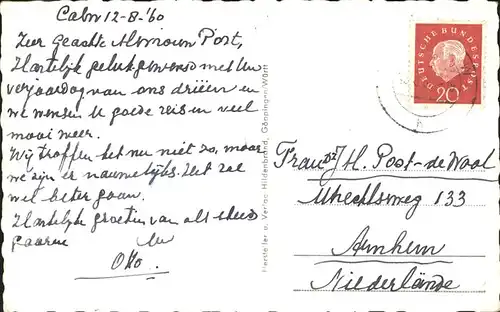 Calw 12-8-'60
Zeer Geachte Mevrouw Post,
Hartelijk gelukgewenst met Uw
verjaardag van ons drieën en
we wensen U goede reis en veel
mooi weer.
Wij troffen het nu niet zo, maar
we zijn er nauwelijks. Het zal
wel beter gaan.
Hartelijke groeten van als steeds
gaarne Uw
Otto.
Hersteller u. Verlag Hilderbrand, Göppingen/Württ
DEUTSCHE BUNDESPOST
20
Frau Dr J.H. Post-de Waal
Utrechtseweg 133
Arnhem
Niederlände